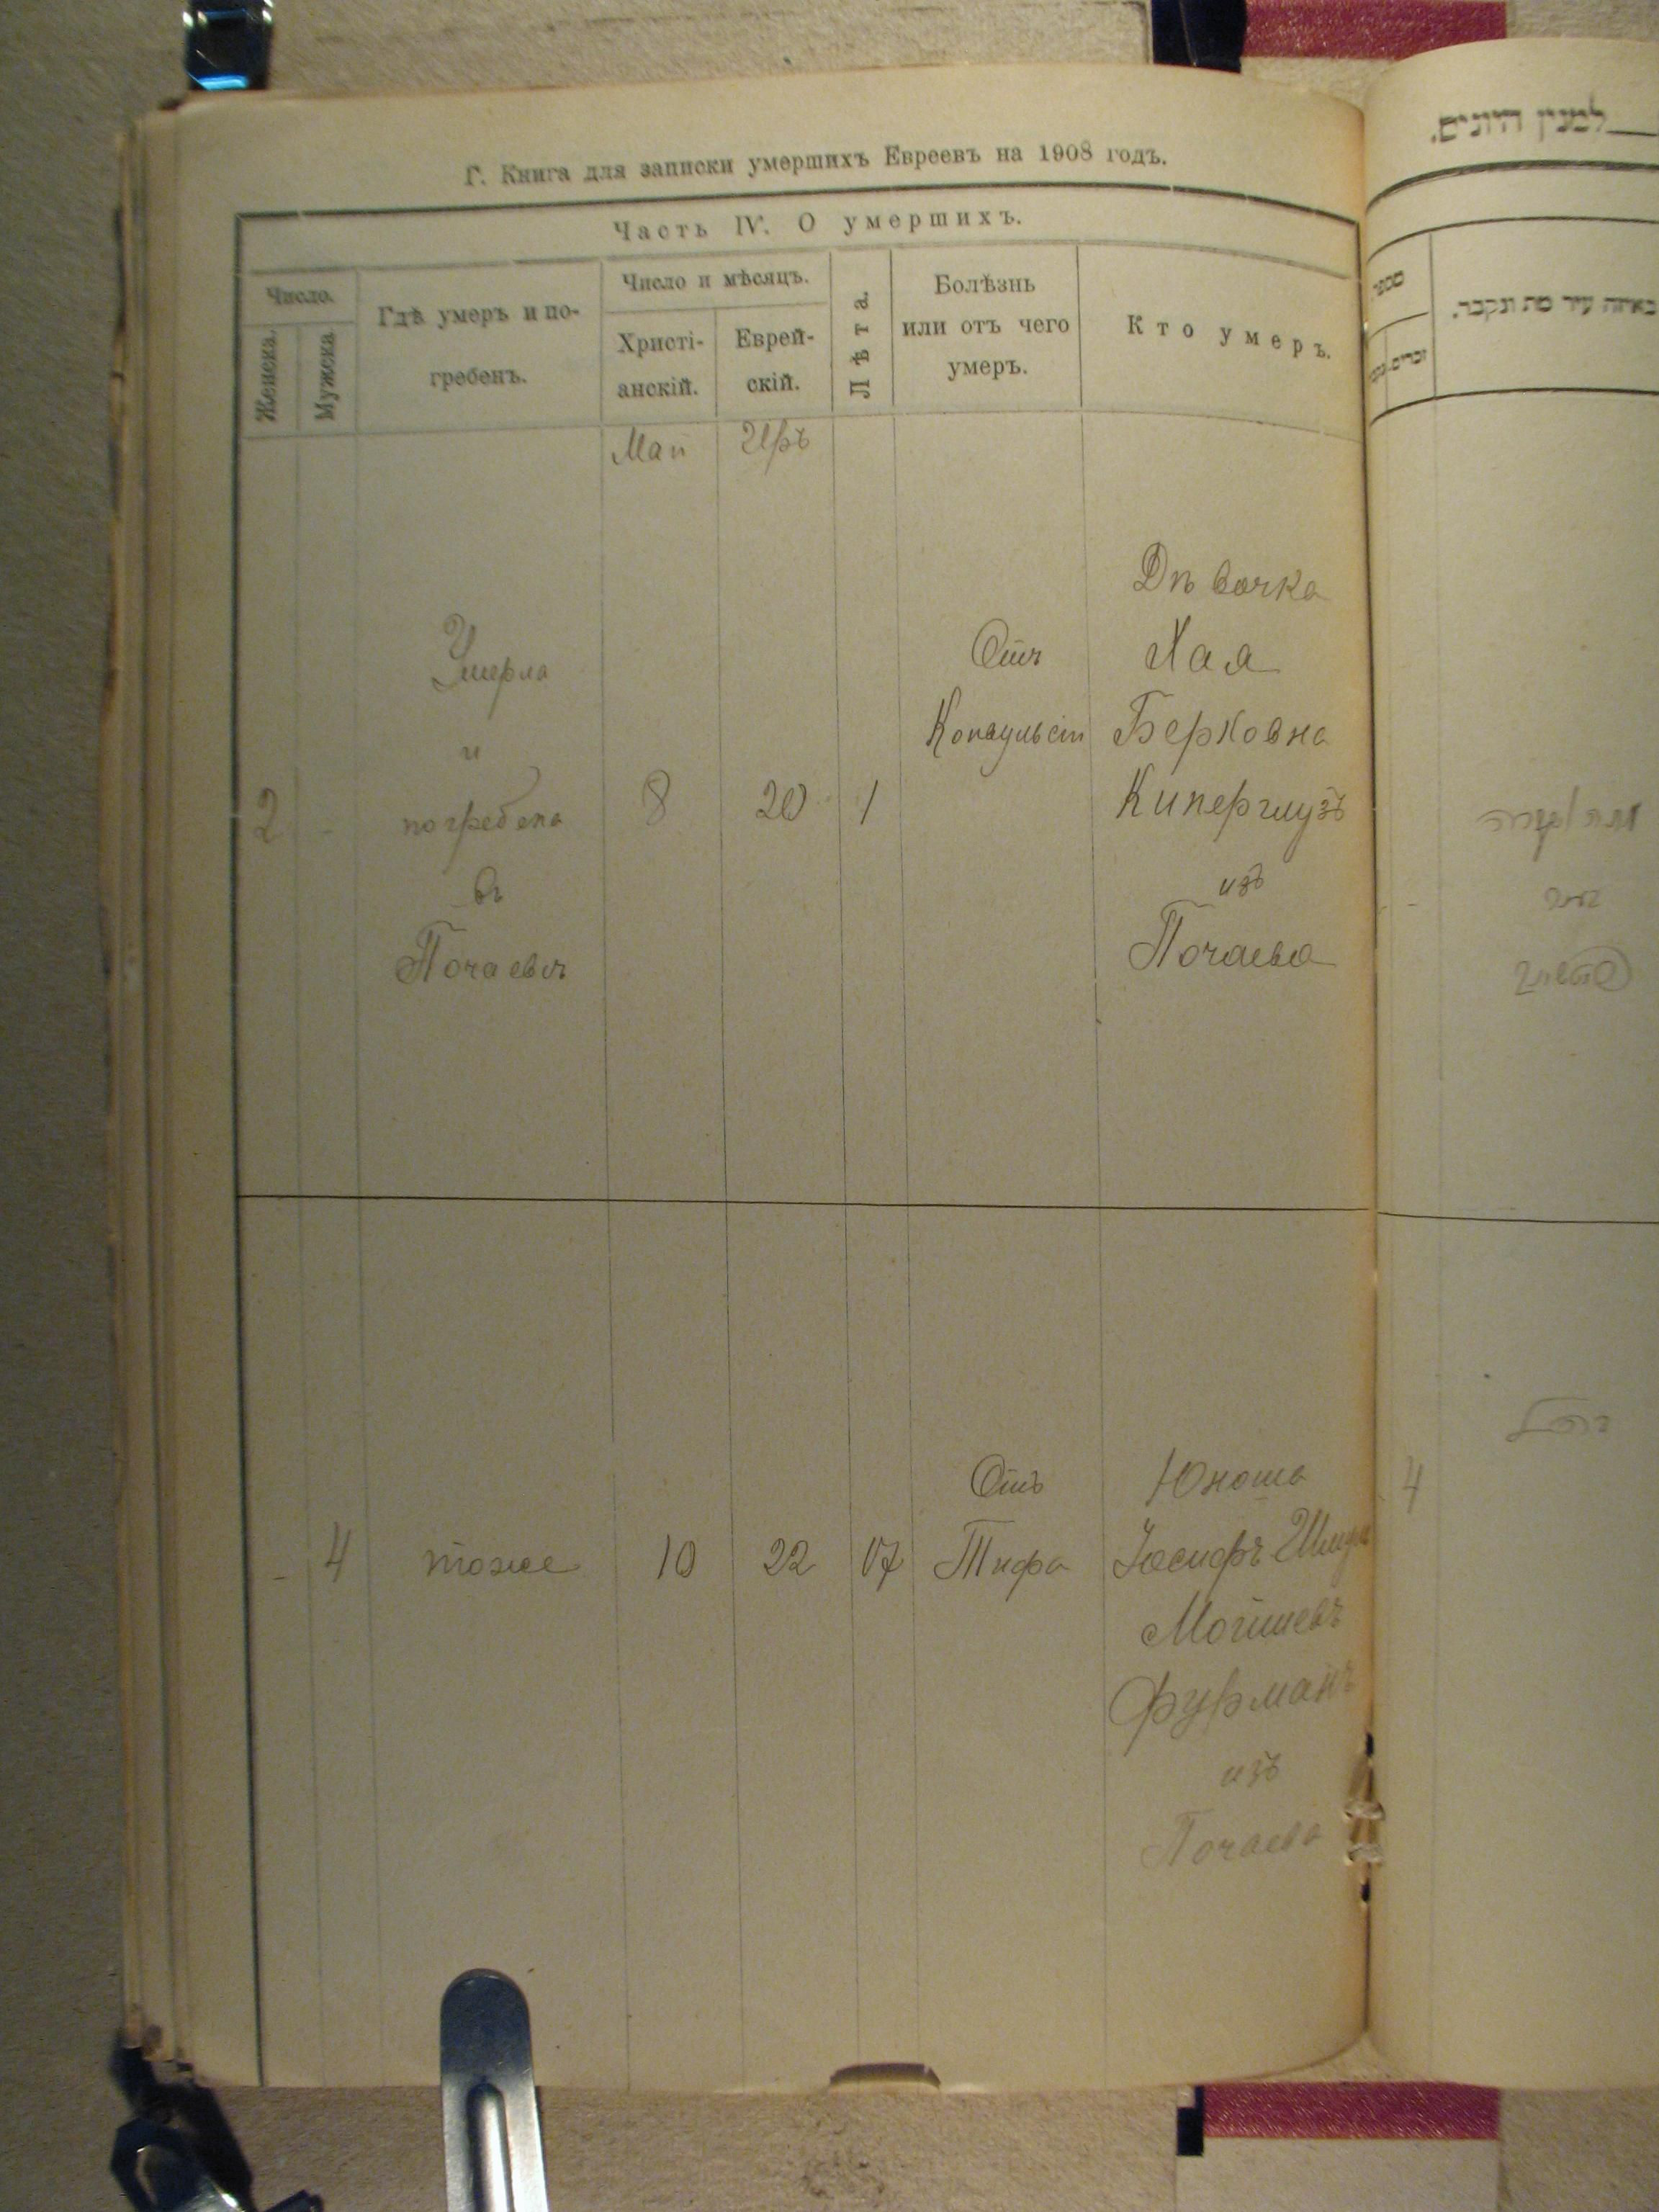 Г. Книга для записки умершихъ Евреевъ на 1908 годъ.
Часть IV. О умершихъ.
Число.
Женска.
Мужска
Гдѣ умеръ и по-
гребенъ.
Число и мѣсяцъ.
Христі-
анскій.
Еврей-
скій.
Лѣта.
Болѣзнь
или отъ чего
умеръ.
Кто умеръ.
Май Иръ
2 -
Умерла
и
погребена
въ
Почаевѣ
8 20 1
Отъ
Конвульсіи
Дѣвочка
Хая
Берковна
Киперглузъ
изъ
Почаева
- 4 тоже 10 22 17
Отъ
Тифа
Юноша
Іосифъ
Мошневъ
Фурманъ
изъ
Почаева
למנין היונים.
מספר
זכרים.
באיזה עיר מת ונקבר.
4